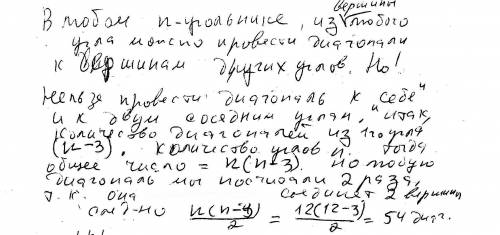 В любом n-угольнике, из вершины любого
угла можно провести диагонали
к вершинам других углов. Но!
Нельзя провести диагональ к "себе"
и к двум соседним углам, "итак,
количество диагоналей из 1го угла
(n-3). количество углов n, тогда
общее число = n(n-3). но любую
диагональ мы посчитали 2 раза,
т.к. она соединяет 2 вершины
след-но n(n-3)/2 = 12(12-3)/2 = 54 диаг.